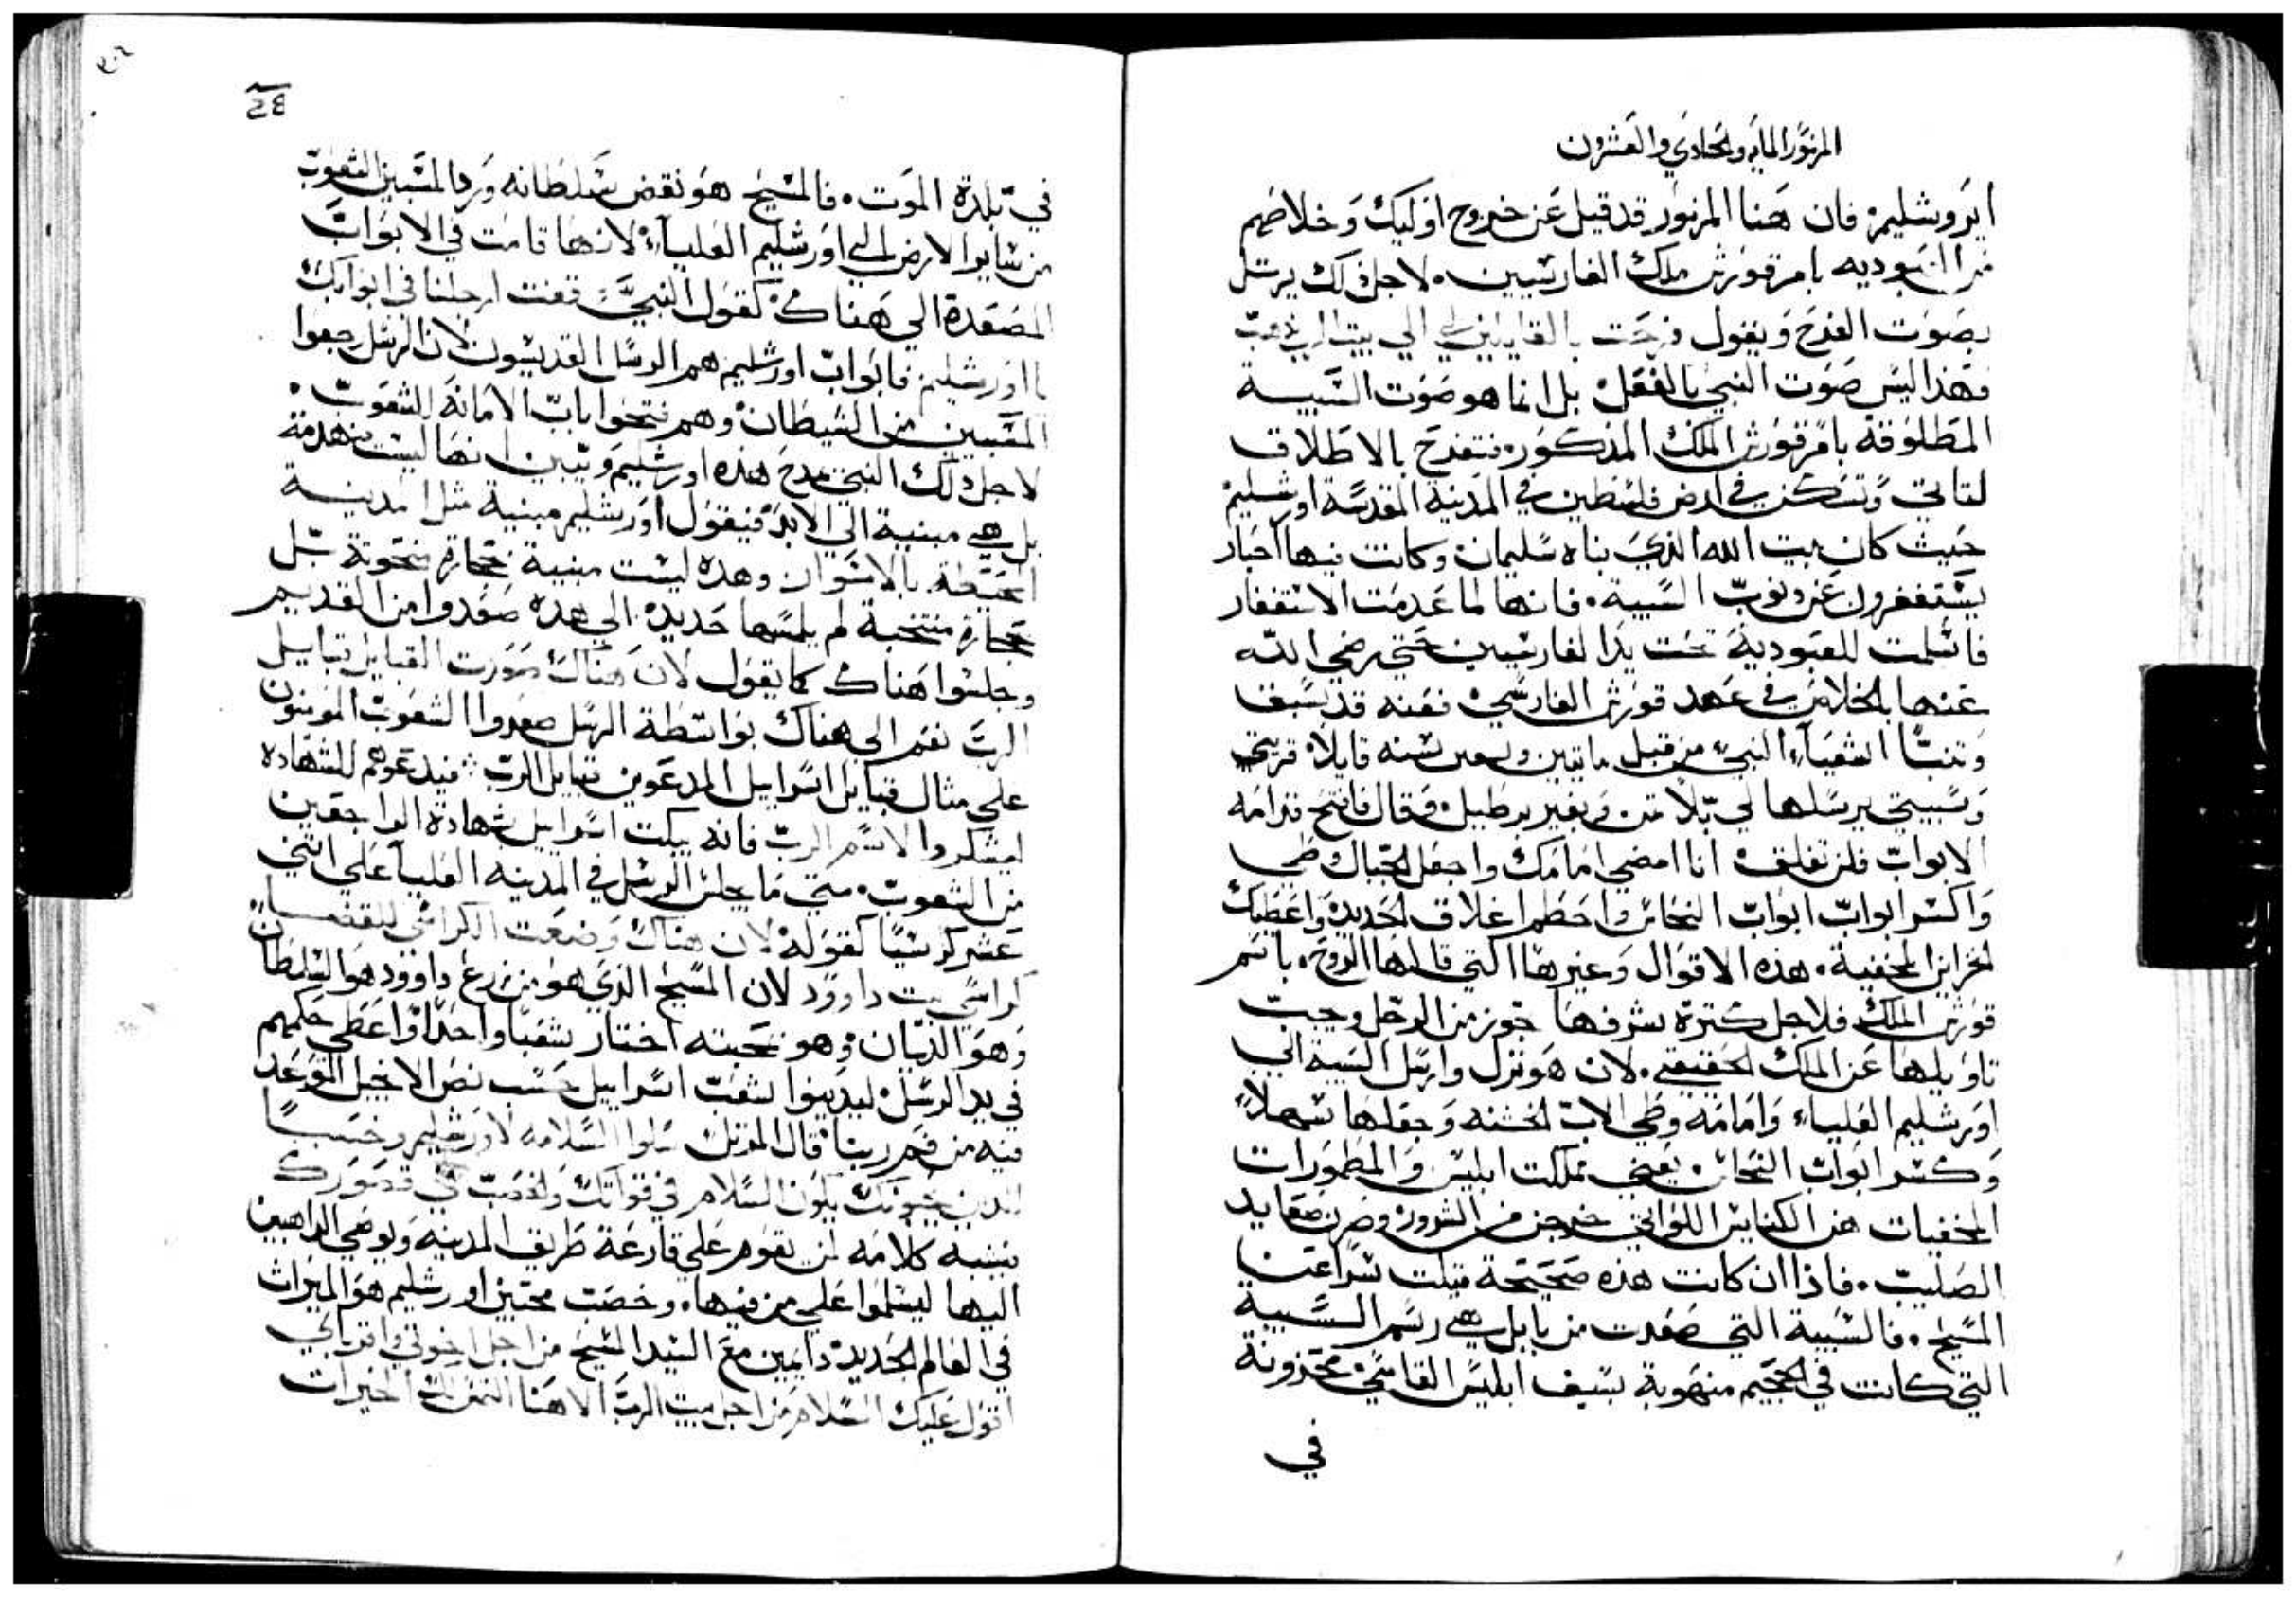 المزمور الماىه والحادي والعشرون
ايروشليم: فان هذا المزمور قد قيل عن خروج اوليك وخلاصهم
من العبوديه بامر قورش ملك الفارسيين. لاجل ذلك يرتل
بصوت الفرح ويقول فرحت بالقايلين لي الي بيت الرب نذهب
فهذا ليس صوت النبي بالفعل بل انما هو صوت السبية
المطلوقة بامر قورش الملك المذكور: فتفرح بالاطلاق
لتاتي وتسكن في ارض فلسطين في المدينة المقدسة اورشليم
حيث كان بيت الله الذي بناه سليمان وكانت فيها احبار
يستغفرون عن ذنوب السبية. فانها لما عدمت الاستغفار
فاسلمت للعبودية تحت يد الفارسيين حتي رضي الله
عنها بالخلاص في عهد قورش الفارسي: فعنه قد سبق
وتنبا اشعياء النبي من قبل مايتين وسعين سنه قايلا: قريتي
وسبيتي يرسلها لي بلا ثمن وبغير برطيل. وقال فاتح قدامه
الابواب فلن تغلق: انا امضي امامك واجعل الجبال وطي
واكسر ابواب ابواب النحاس واحطم اغلاق الحديد واعطيك
الخزاين المخفية. هذه الاقوال وغيرها التي قالها الروح. باسم
قورش الملك فلاجل كترة شرفها تجوز من الرجل وجب
تاويلها عن الملك الحقيقي. لان هو نزل وارسل السبية الي
اورشليم العلياء وامامه وطي الاب الخشنه وجعلها سهلا
وكسر ابواب النحاس يعني مملكت ابليس والمطمورات
المخفيات هن الكنايس اللواتي خرجن من الشرور وصرن معابد
الصليب. فاذا ان كانت هذه صحيحة قبلت شراعتنا
المسيح. فالسبية التي صعدت من بابل هي رسم السبية
التي كانت في الجحيم منهوبة بسيف ابليس القاسي مخزونة
في
في بلدة الموت. فالمسيح هو نقض سلطانه ورد المسبيين الشعوب
من ساير الارض الي اورشليم العلياء: لانها قامت في الابواب
المصعدة الي هناك: كقول النبي: وقفت ارجلنا في ابوابك
يا اورشليم فابواب اورشليم هم الرسل القديسون لان الرسل رجعوا
المسبيين من الشيطان: وهم فتحوا باب الامانة للشعوب.
لاجل ذلك النبي مدح هذه اورشليم ويبين انها ليست منهدمة
بل هي مبنية الي الابد فيقول اورشليم مبنية مثل المدينة
المحيطة بالاسوار وهذه ليست مبنية بحجارة منحوتة بل
بحجارة منتخبة لم يلمسها حديد: الي هذه صعدوا من القديم
وجلسوا هناك كما يقول لان هناك صعدت القبايل قبايل
الرب نعم الي هناك بواسطة الرسل صعدوا الشعوب المومنون
علي مثال قبايل اسراييل المدعوين قبايل الرب: فيدعوهم للشهاده
ليشكروا لاسم الرب فانه يبكت اسراييل بشهادة الراجعين
من الشعوب. متي ما جلس الرسل في المدينه العليا علي اثني
عشر كرسيا كقوله: لان هناك وضعت الكراسي للقضا
كراسي بيت داوود لان المسيح الذي هو من زرع داوود هو السلطان
وهو الديان: وهو بمحبته اختار شعبا واحدا: واعطي حكمهم
في يد الرسل: ليدينوا شعب اسراييل حسب نص الانجيل الموعد
فيه من فم ربنا: قال المرتل سلوا السلامه لاورشليم وخصبا
للذين يحبونك يكون السلام في قواتك والخصب في قصورك
يشبه كلامه لمن يقوم علي قارعة طريق المدينه ويوصي الداهبين
اليها ليسلموا علي من فيها. وخصب محبين اورشليم هو الميراث
في العالم الجديد: دايمين مع السيد المسيح من اجل اخوتي واقرباي
اقول عليك السلام من اجل بيت الرب الاهنا التمس لك الخيرات